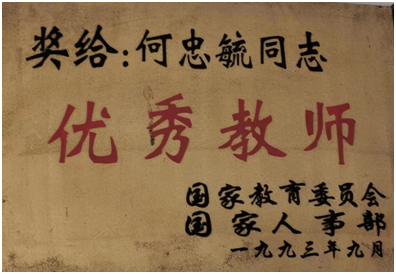 奖给:何忠毓同志
优秀教师
国家教育委员会
国家人事部
一九九三年九月